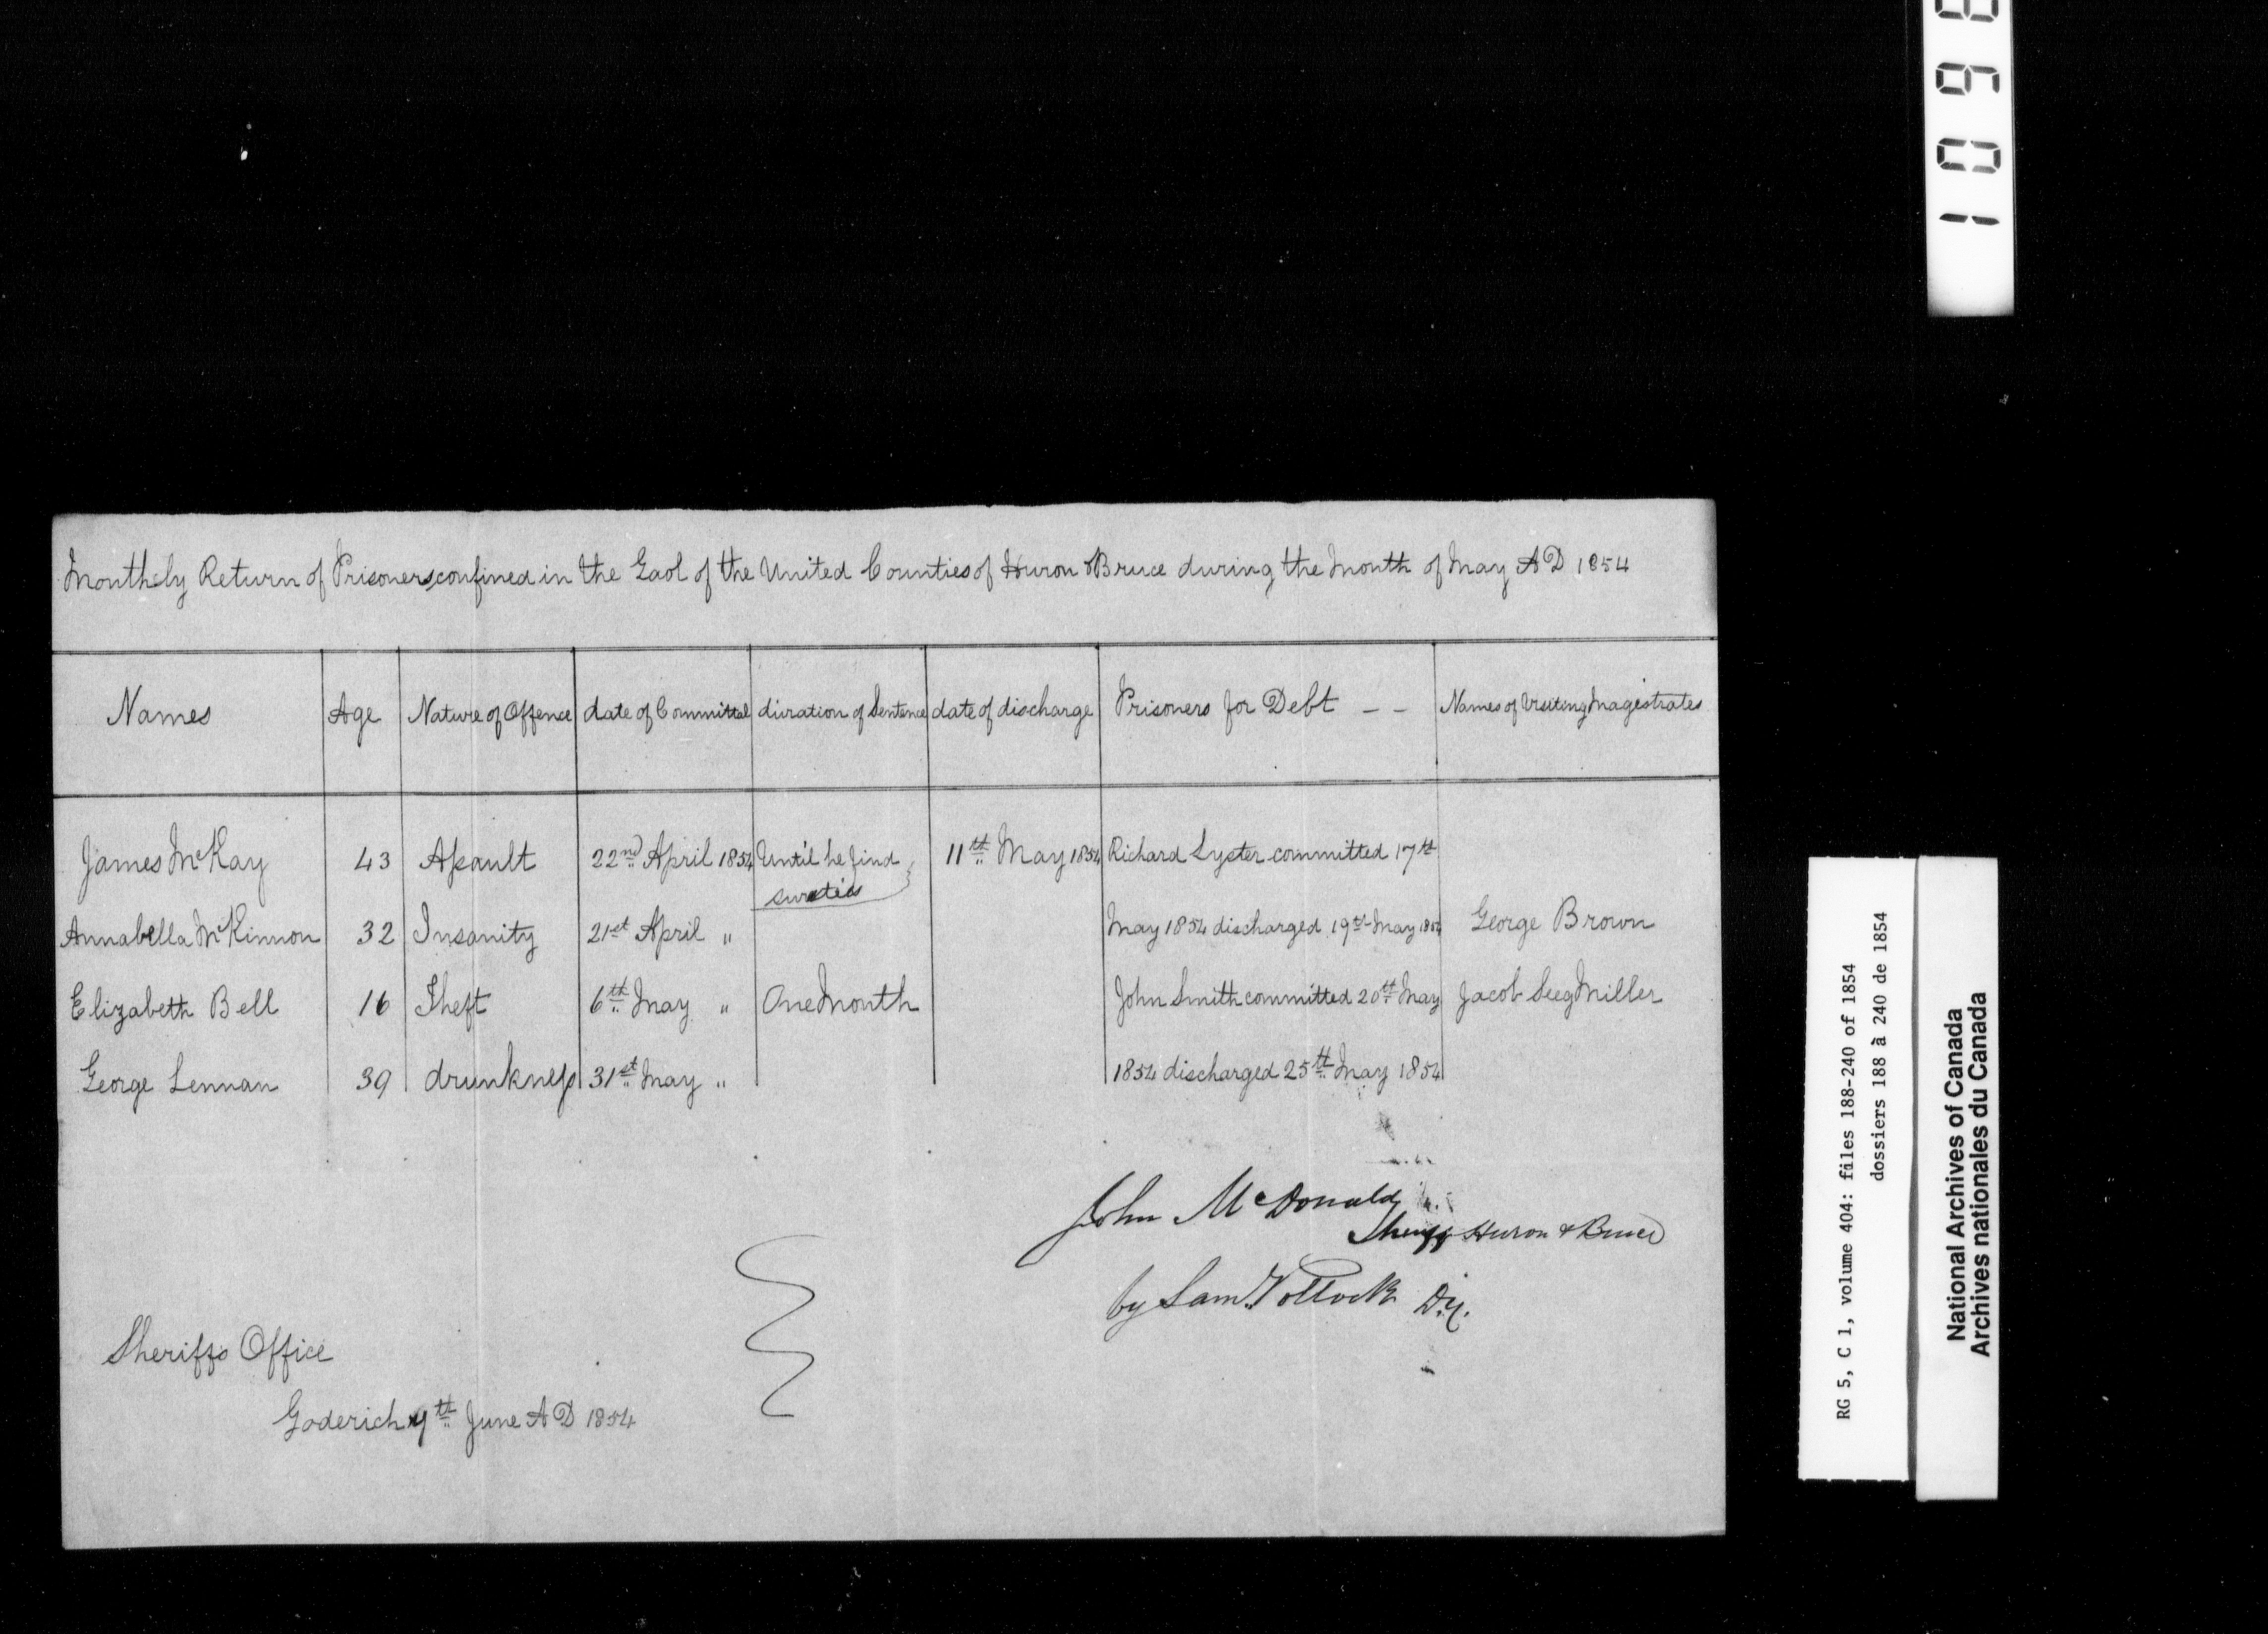 Monthely Return of Prisoners confined in the Gaol of the United Counties of Huron & Bruce during the Month of May A D 1854
Names | Age | Nature of Offence | date of Committal | duration of Sentence | date of discharge | Prisoners for Debt — — | Names of Visiting Magistrates
James McKay | 43 | Assault | 22nd April 1854 | Until he find | 11th May 1854 | Richard Lyster committed 17th
sureties
Annabella McKinnon | 32 | Insanity | 21st April " | May 1854 discharged 19th May 1854 | George Brown
Elizabeth Bell | 16 | Theft | 6th May " | One Month | John Smith committed 20th May | Jacob Seegmiller
George Lennan | 39 | drunkness | 31st May " | 1854 discharged 25th May 1854
John McDonald
Sheriff Huron & Bruce
by Saml Pollock Dy.
Sheriffs Office
Goderich 9th June A D 1854
1098
RG 5, C 1, volume 404: files 188-240 of 1854
dossiers 188 à 240 de 1854
National Archives of Canada
Archives nationales du Canada